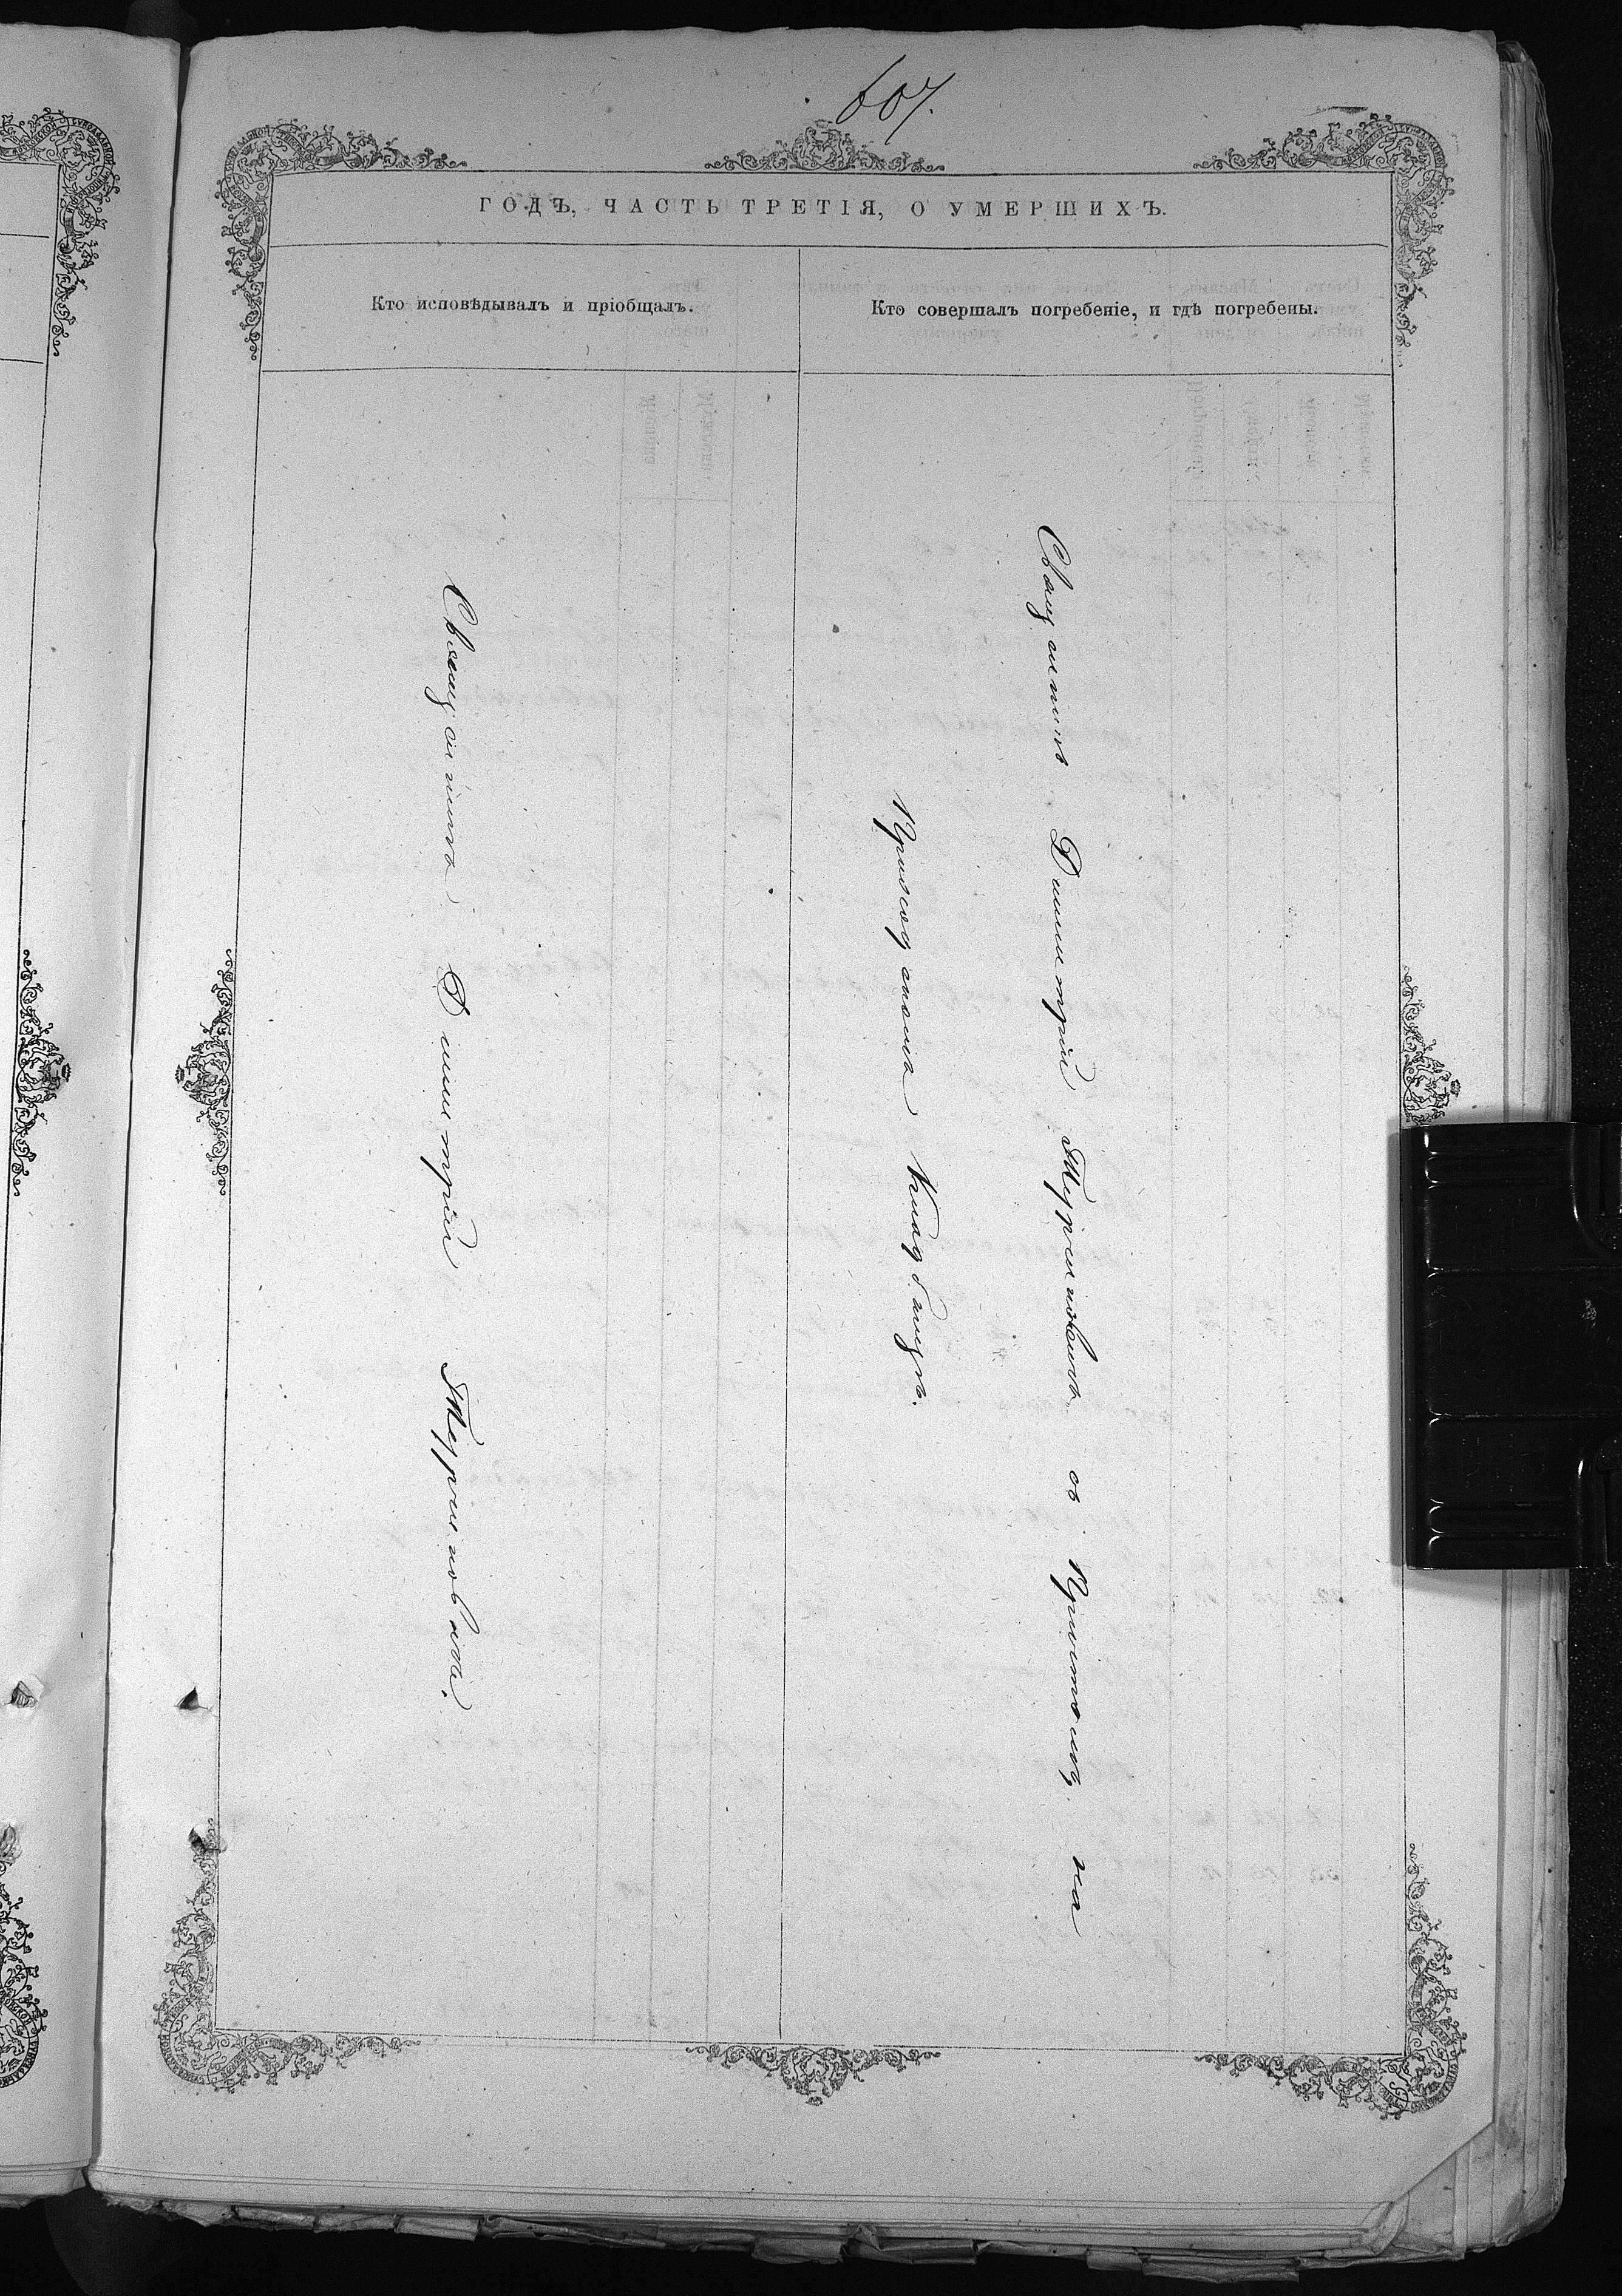 607.
ГОДЪ, ЧАСТЬ ТРЕТІЯ, О УМЕРШИХЪ.
Кто исповѣдывалъ и пріобщалъ.
Кто совершалъ погребеніе, и гдѣ погребены.
Священникъ Димитрій
Священникъ Димитрій съ Причтомъ на
Приходскомъ Кладбищѣ.